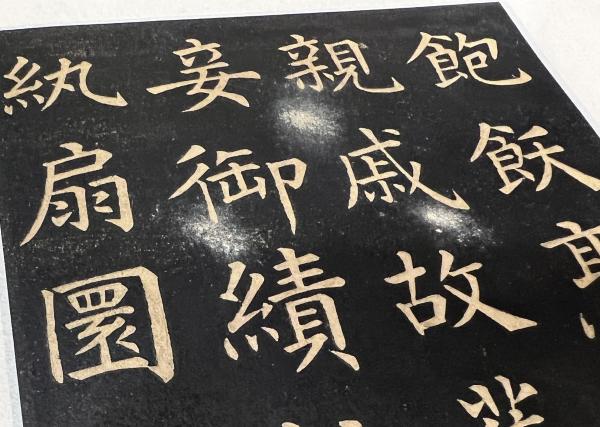 飽飫
親戚故
妾御績
紈扇圜